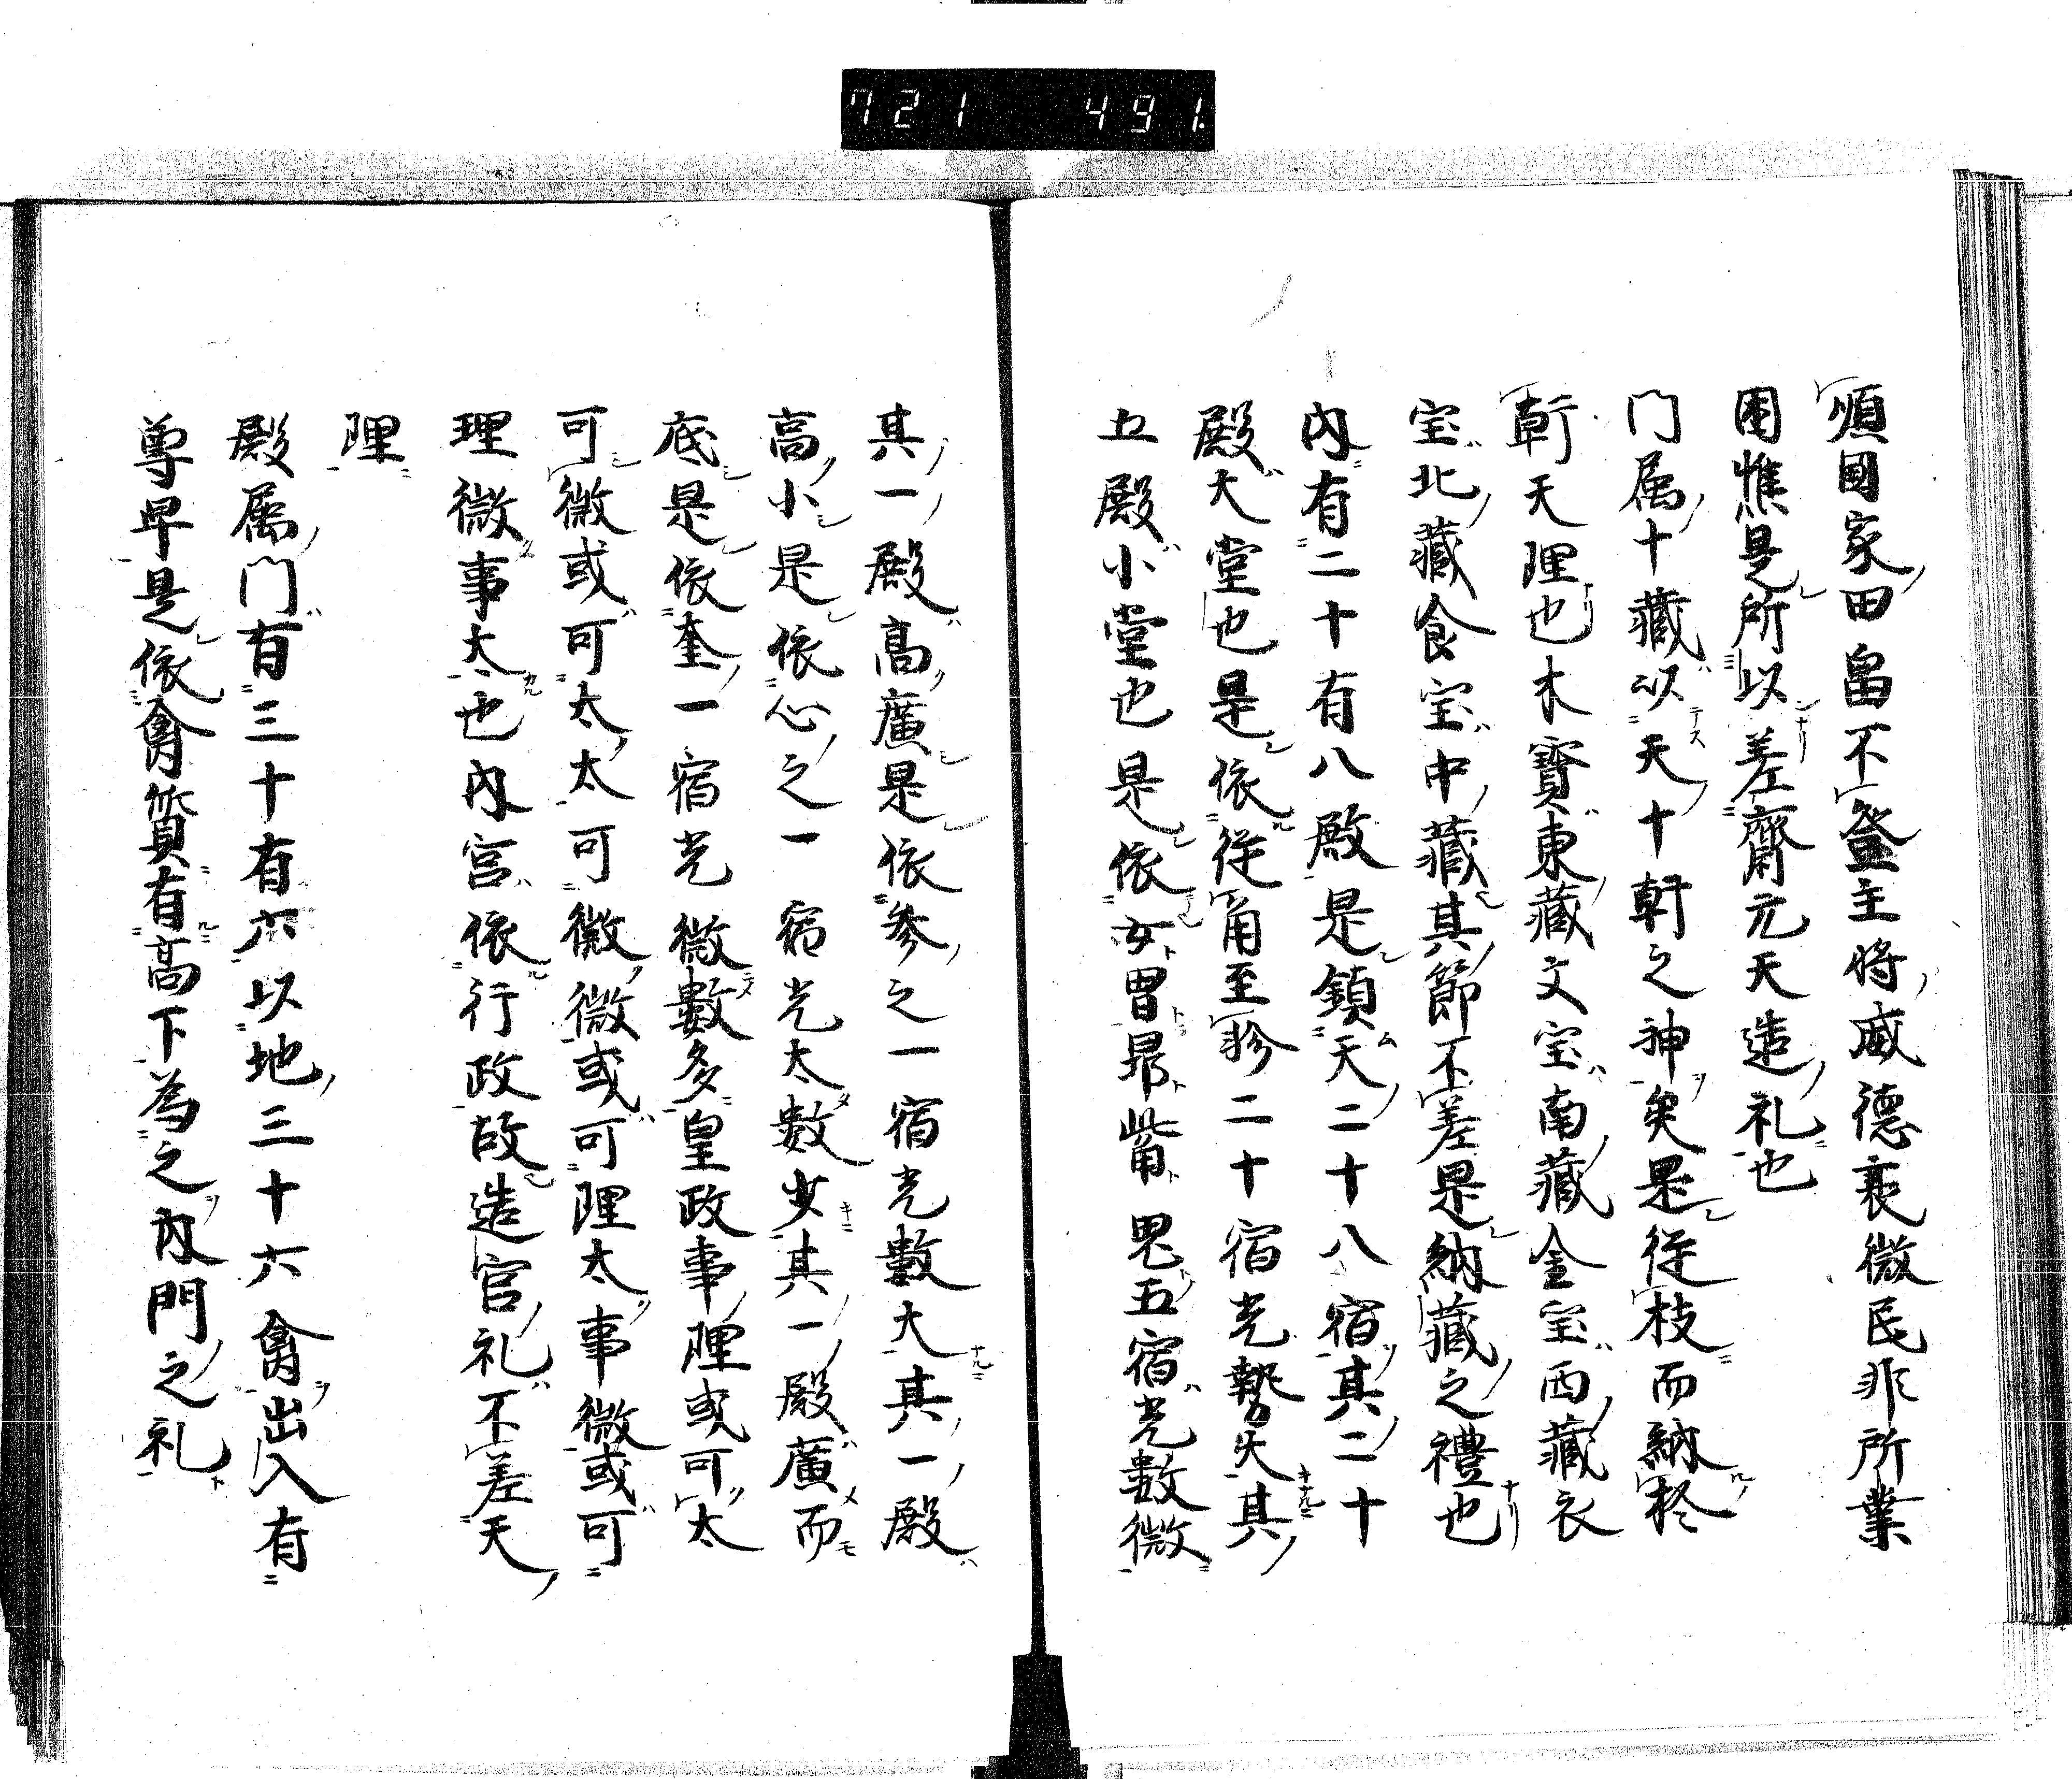 721 491.
順国家田畠不登主将威徳衰微民非所業
困惟是所以差齊元天造礼也
门属十藏以天十軒之神矣是従枝而納柊
軒天理也木寶東藏文宝南藏金宝西藏衣
宝北藏食宝中藏其節不差是納藏之禮也
内有二十有八殿是鎮天二十八宿其二十
殿大堂也是依従角至軫二十宿光勢大其
五殿小堂也是依女胃昴觜鬼五宿光数微
其一殿高廣是依参之一宿光數大其一殿
高小是依心之一宿光太數少其一殿廣而
底是依奎一宿光微數多皇政事理或可太
可微或可太太可微微或可理太事微或可
理微事太也内宮依行政故造官礼不差天
理
殿属门有三十有六以地三十六禽出入有
尊卑是依禽質有高下為之内門之礼